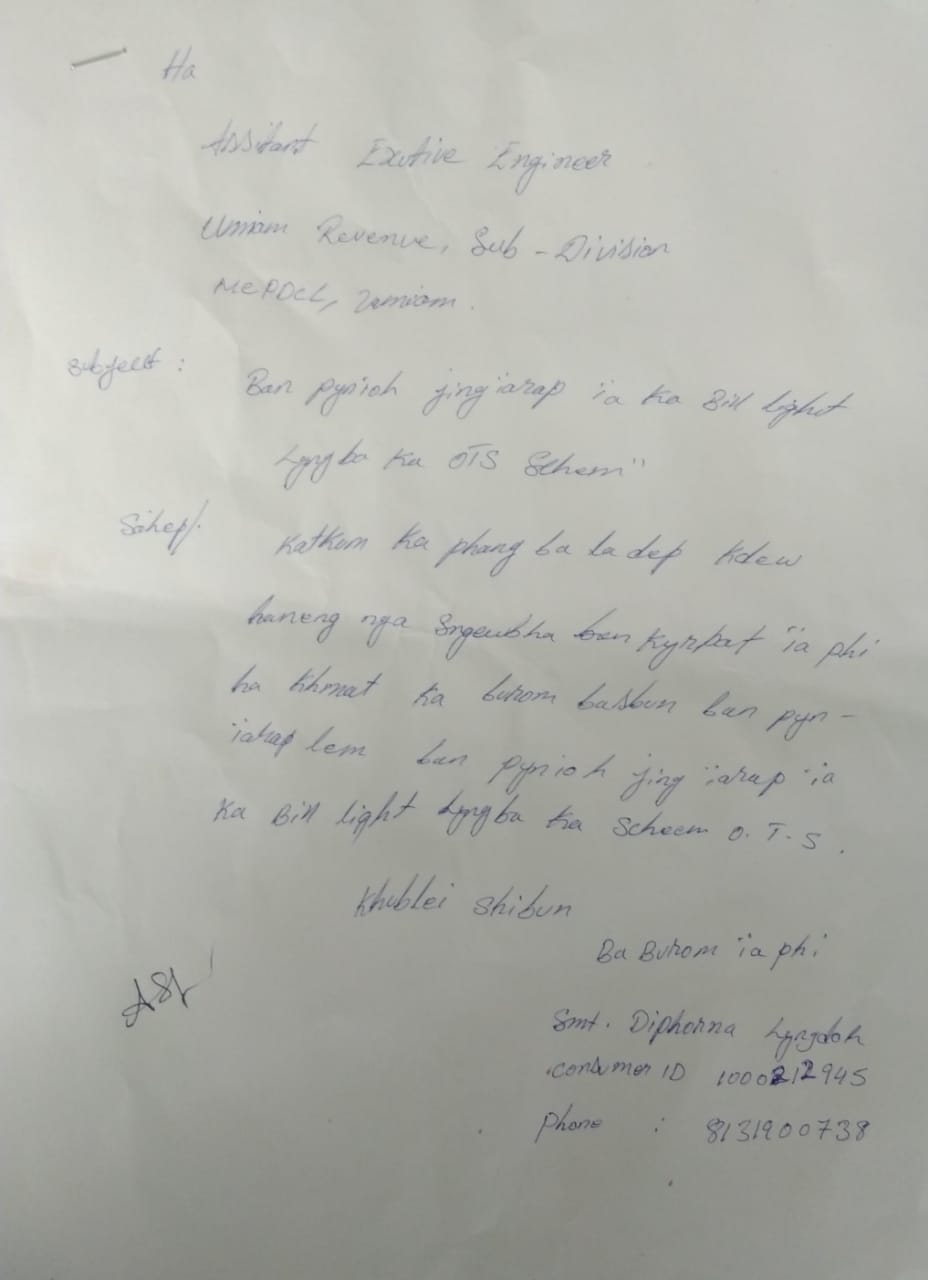 Ha
Assitant Exutive Engineer
Umiam Revenue, Sub-Division
MePDCL, Umiam.
Subject : Ban pynioh jingïarap ïa Ka Bill light
Lyngba Ka OTS Schem"
Sahep/. Katkum Ka phang ba la dep Kdew
haneng nga Sngewbha ban Kyrpat ïa phi
ha Khmat Ka burom baSbun ban pyn-
ïarap lem ban pynioh jingïarap ïa
Ka Bill light Lyngba Ka Scheem O.T.S.
Khublei Shibun
Ba Burom ïa phi
Smt. Diphorna Lyngdoh
Consumer ID 1000212945
Phone : 8131900738